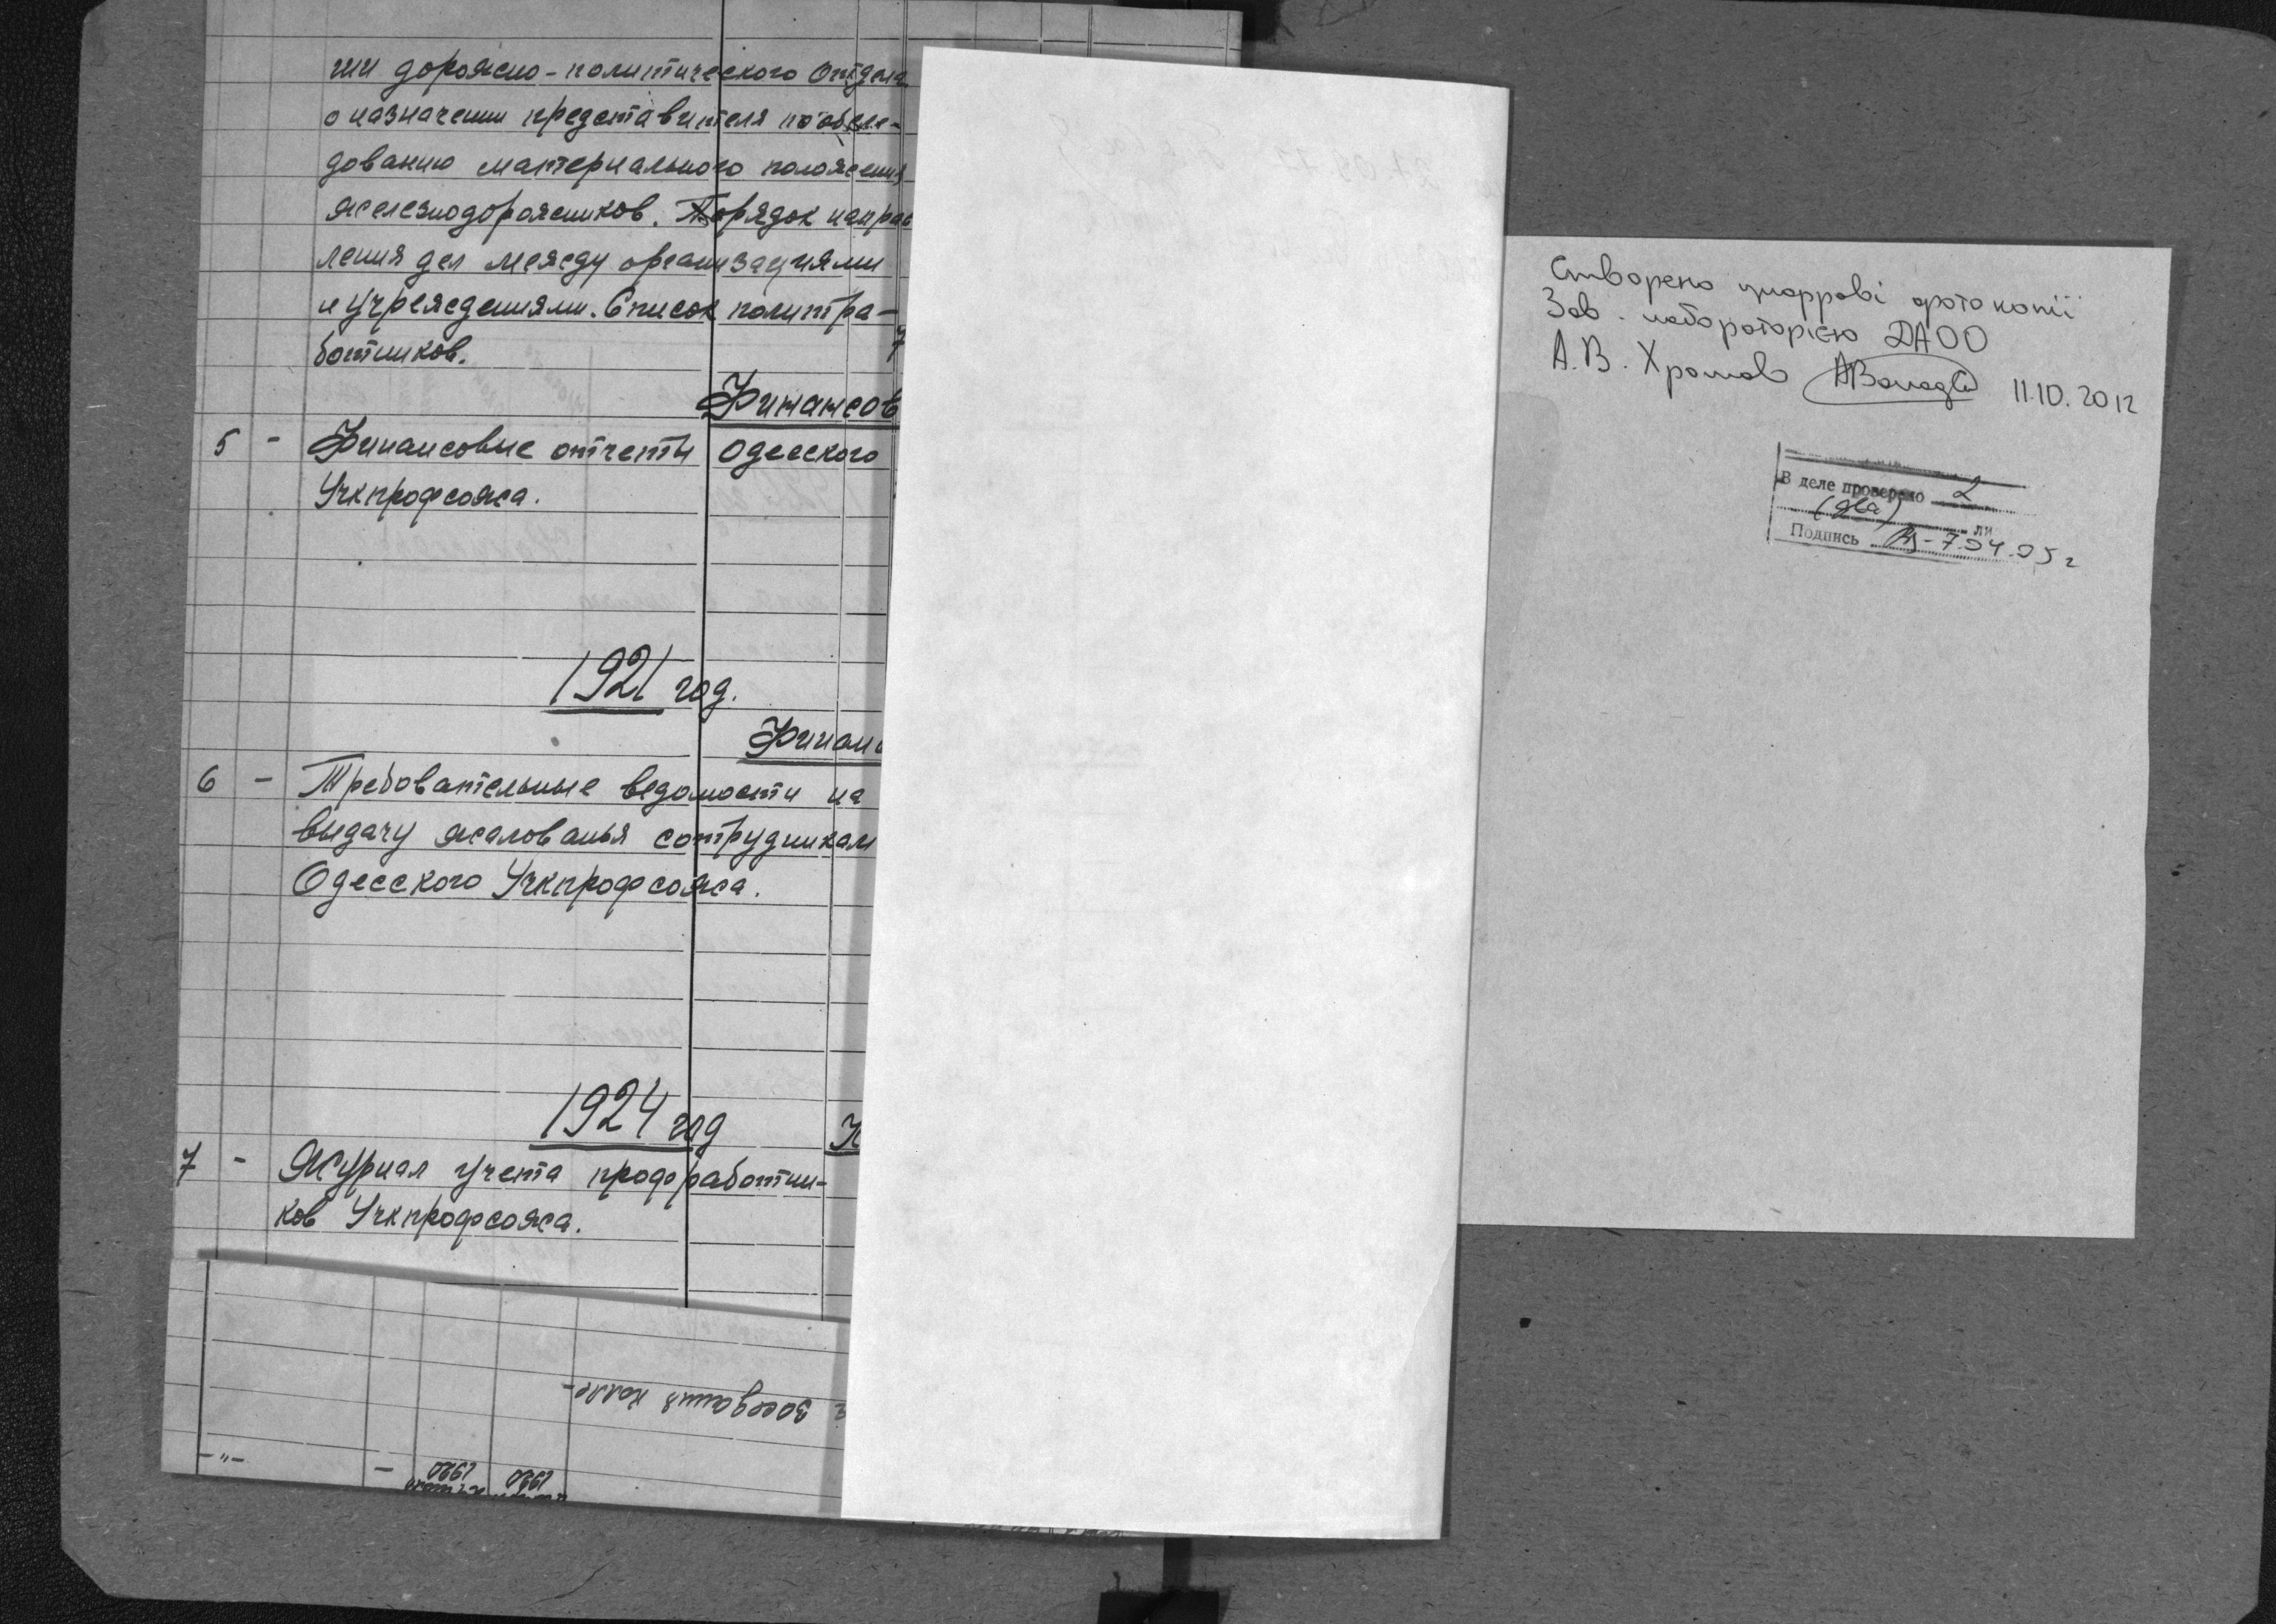 ции дорожно-политического Отдела
о назначении представителя по обсле-
дованию материального положения
железнодорожников. Порядок направ
ления дел между организациями
и учреждениями. Список политра-
ботников.
Финансов
5 - Финансовые отчеты Одесского
Учкпрофсожа.
1921 год.
Финанс
6 - Требовательные ведомости на
выдачу жалованья сотрудникам
Одесского Учкпрофсожа.
1924 год
7 - Журнал учета профработни-
ков Учкпрофсожа.
заседаний
-"- - 1920 1920
Створено цифрові фотокопії
Зав. лабораторією ДАОО
А.В. Хромов 11.10.2012
В деле проверено 2
(два) ли
Подпись 7.04.05 г